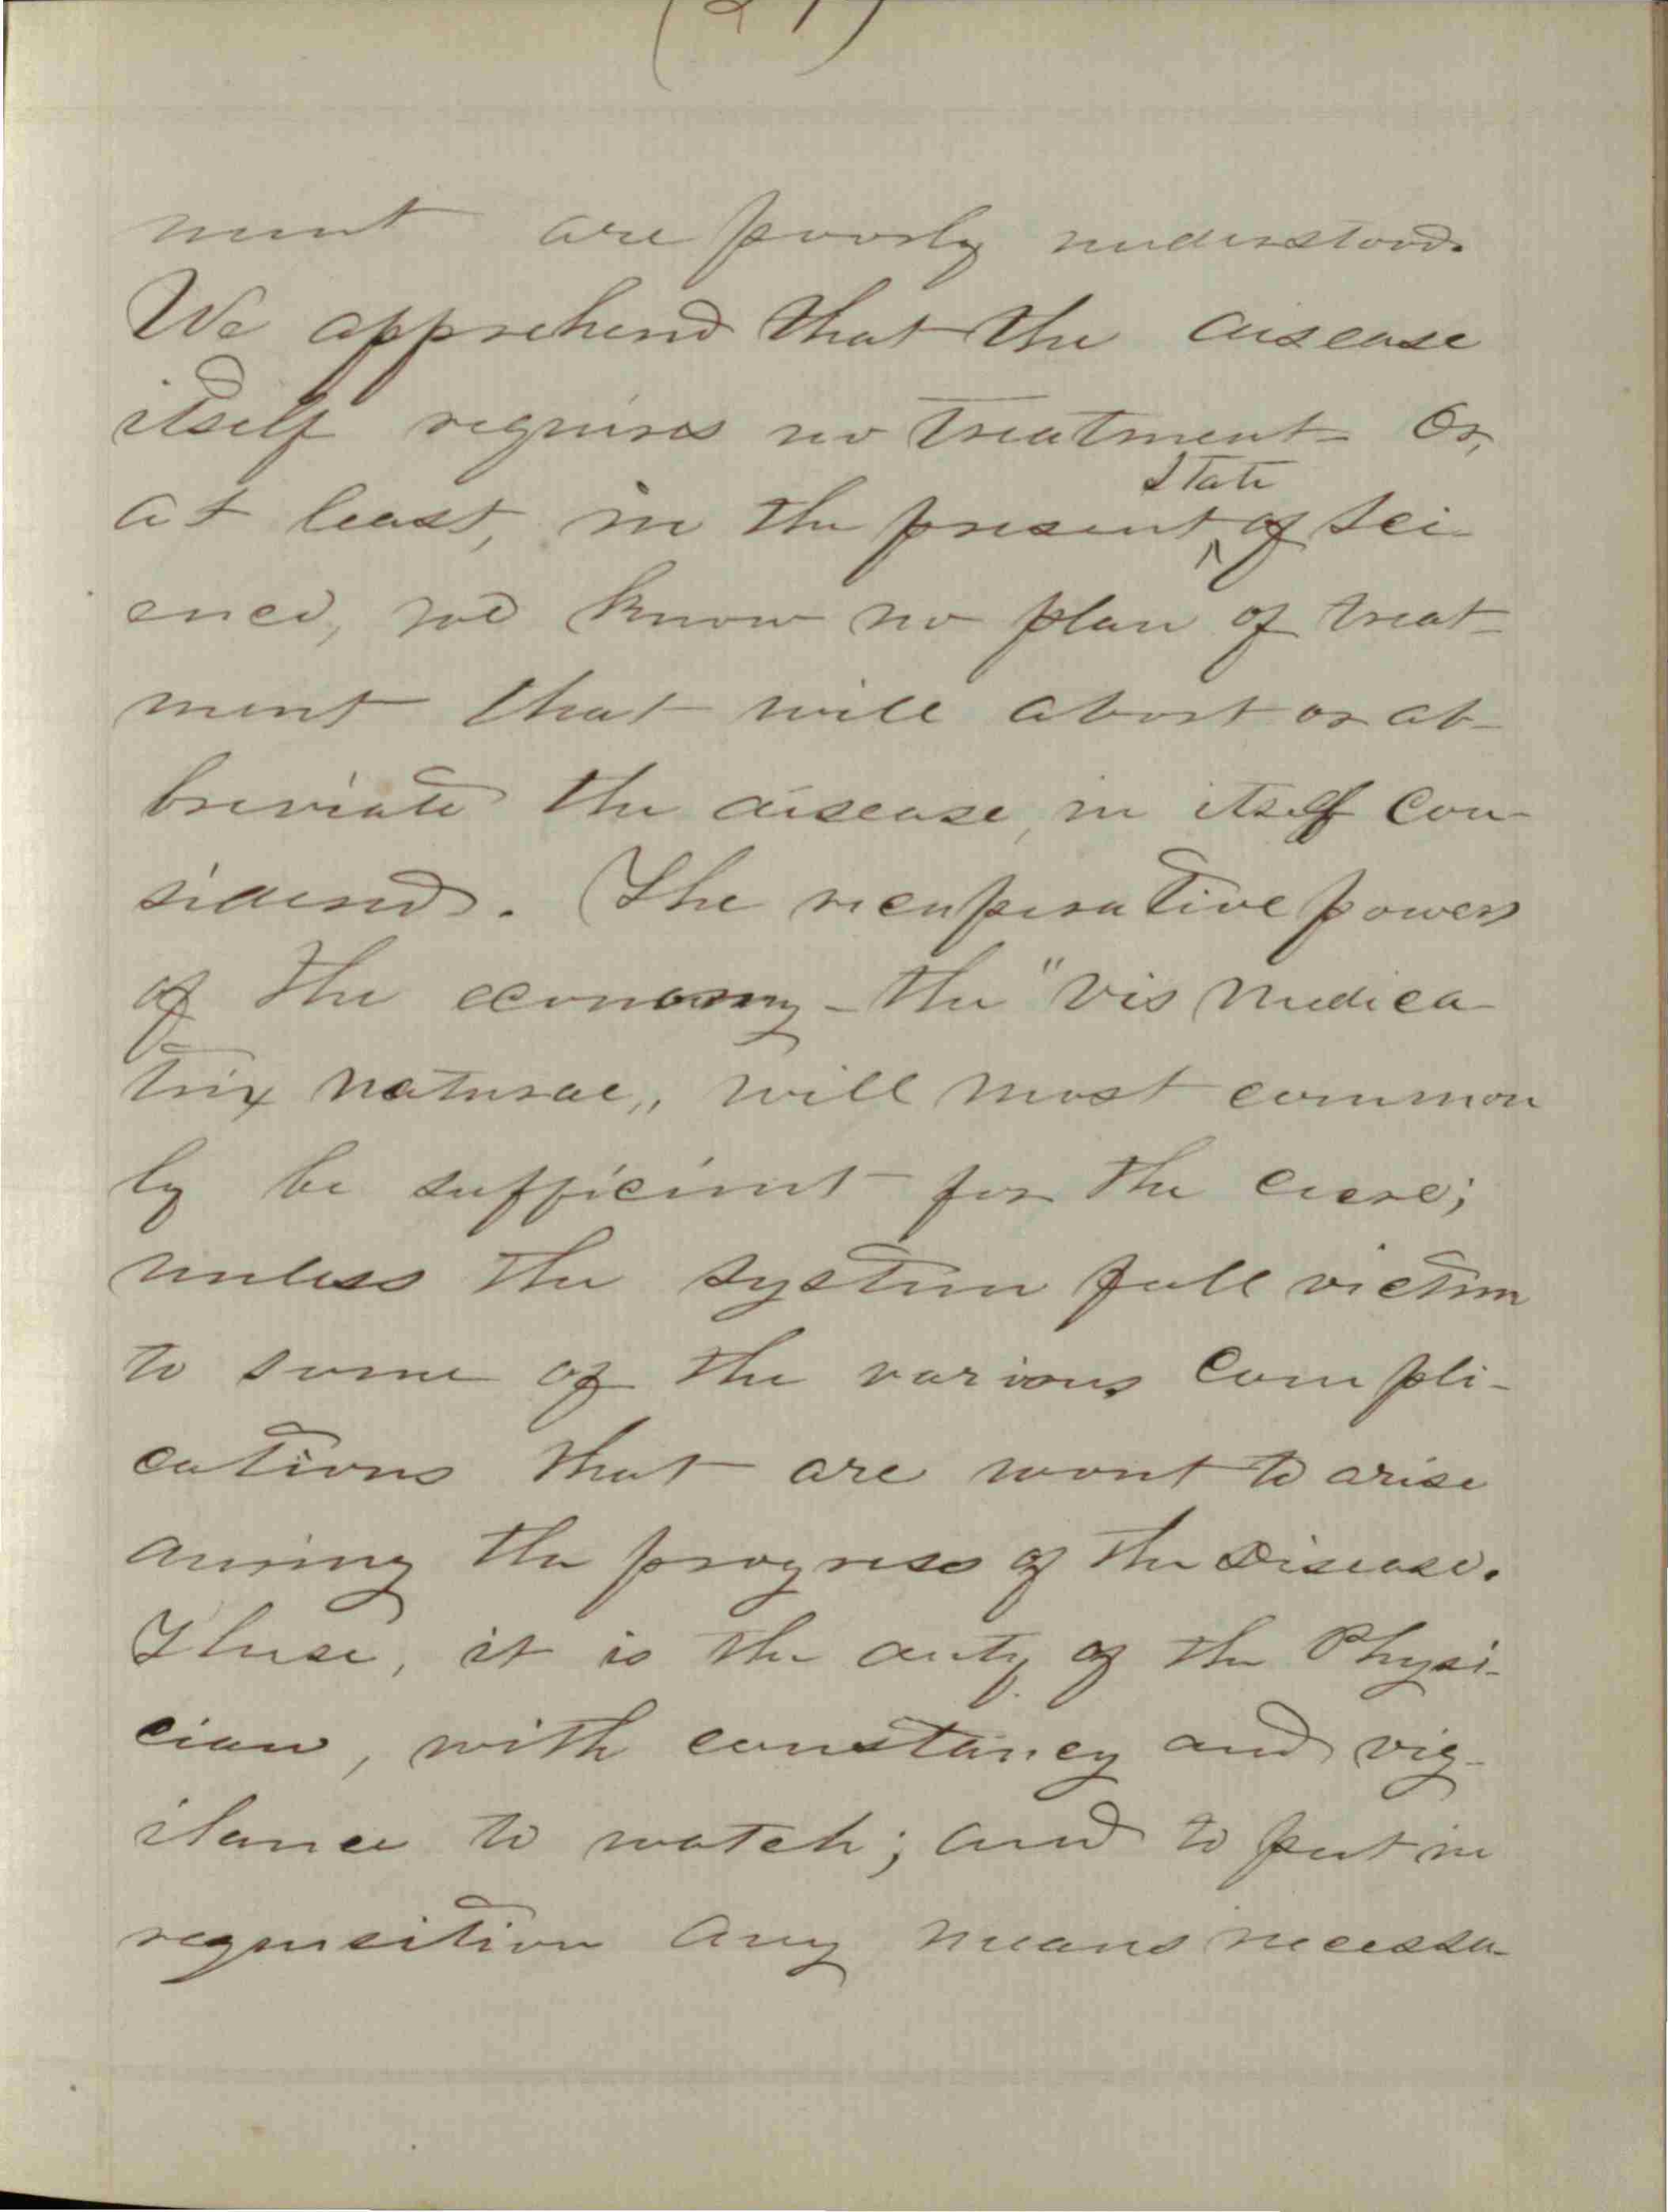 ment are poorly understood.
We apprehend that the disease
itself requires no treatment Or,
at least, in the present state of sci-
ence, we know no plan of treat-
ment that will abort or ab-
breviate the disease, in itself con-
sidered. The recuperative powers
of the economy - the "vis medica-
trix naturae,, will most common
ly be sufficient for the cure;
unless the system fall victim
to some of the various compli-
cations that are wont to arise
during the progress of the disease.
These, it is the duty of the Physi-
cian, with constancy and vig-
ilance to watch; and to put in
requisition any means necessa-